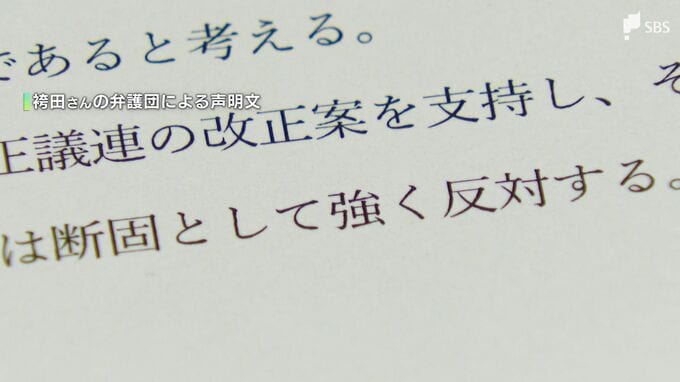 SBS
であると考える。
袴田さんの弁護団による声明文
正議連の改正案を支持し、そ
は断固として強く反対する。